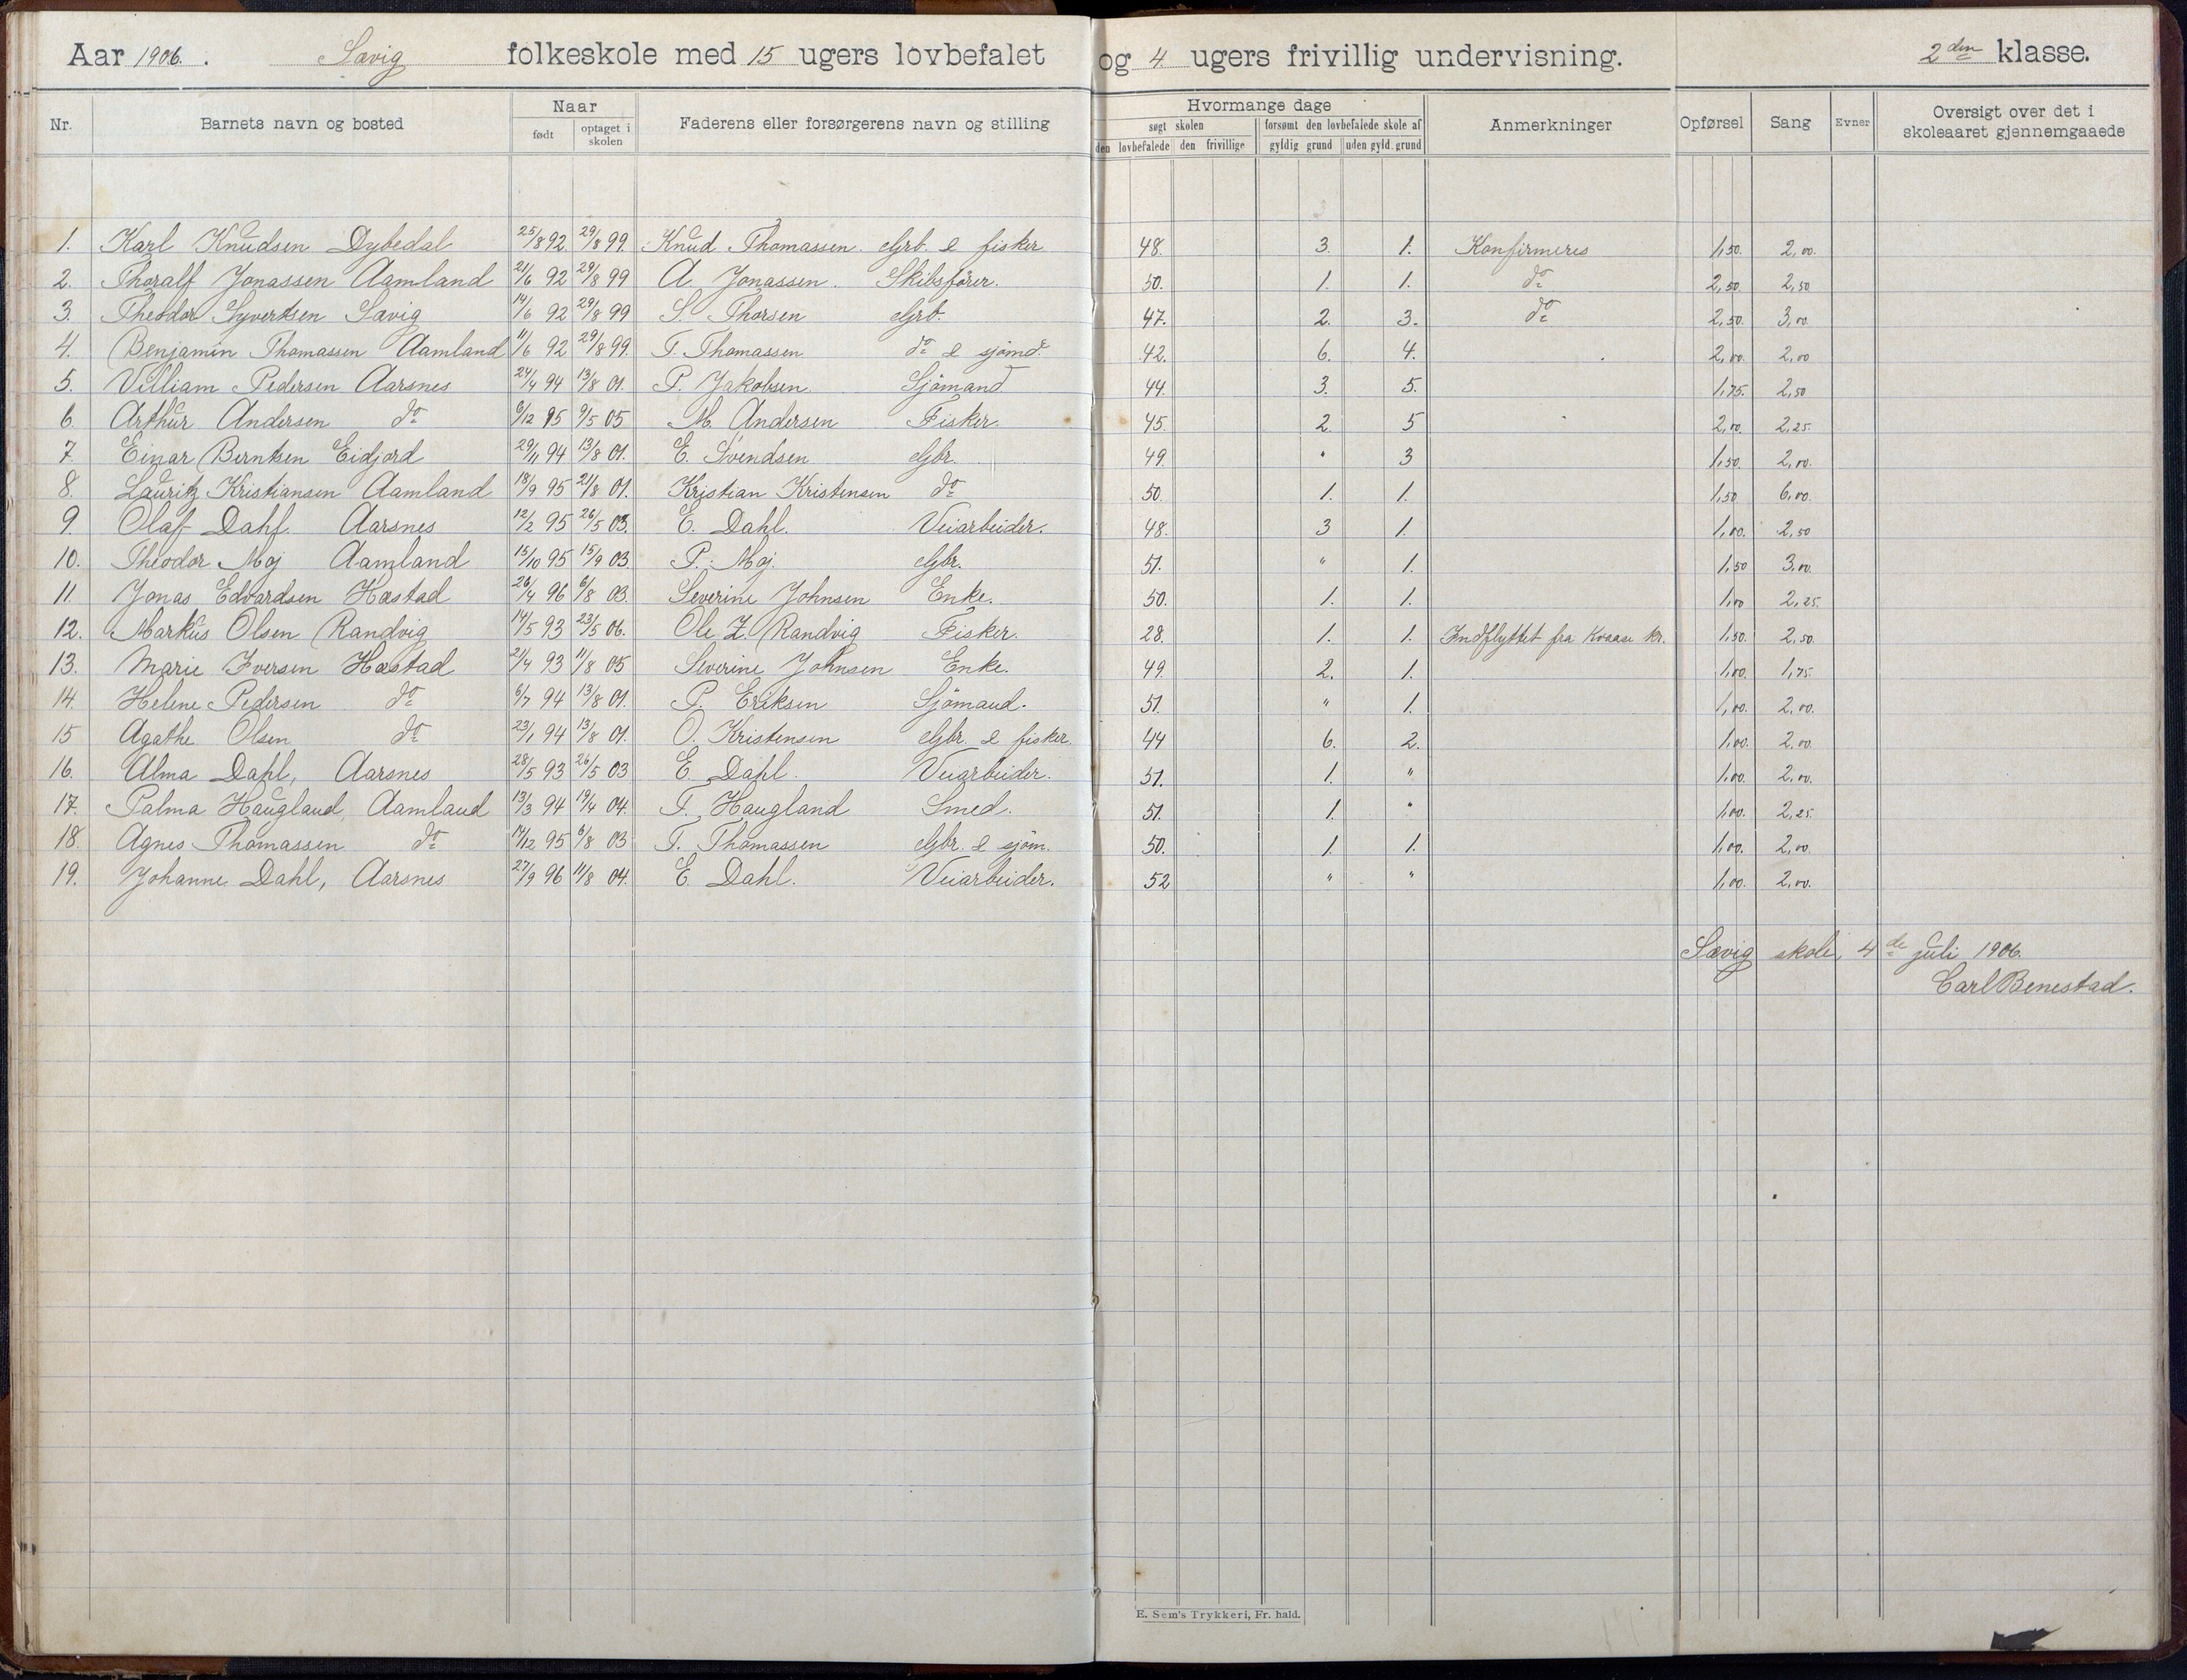 Aar 1906. Sævig folkeskole med 15 ugers lovbefalet og 4 ugers frivillig undervisning. 2den klasse.
Nr. Barnets navn og bosted Naar født optaget i skolen Faderens eller forsørgerens navn og stilling Hvormange dage søgt skolen den lovbefalede den frivillige forsømt den lovbefalede skole af gyldig grund uden gyld. grund Anmerkninger Opførsel Sang Evner Oversigt over det i skoleaaret gjennemgaaede
1. Karl Knudsen Dybedal 25/8 92 29/8 99. Knud Thomassen. Grb. & fisker 48. 3. 1. Konfirmeres 1,50. 2,00.
2. Thoralf Jonassen Aamland 21/6 92 29/8 99 A. Jonassen. Skibsfører. 50. 1. 1. do 2,50. 2,50
3. Theodor Syvertsen Sævig 14/6 92 29/8 99 S. Thorsen Grb. 47. 2. 3. do 2,50. 3,00.
4. Benjamin Thomassen Aamland 11/6 92 29/8 99. T. Thomassen do & sjömd. 42. 6. 4. 2,00. 2,00
5. Villiam Pedersen Aarsnes 24/4 94 13/8 01. P. Jakobsen. Sjömand 44. 3. 5. 1,75. 2,50
6. Arthur Andersen do 6/12 95 9/5 05 M. Andersen Fisker. 45. 2. 5 2,00. 2,25.
7. Einar Berntsen Eidjord 29/11 94 13/8 01. E. Svendsen Gbr. 49. " 3 1,50. 2,00.
8. Lauritz Kristiansen Aamland 18/9 95 21/8 01. Kristian Kristensen do 50. 1. 1. 1,50 6,00.
9. Olaf Dahl. Aarsnes 12/2 95 26/5 03. E. Dahl. Veiarbeider. 48. 3 1. 1,00. 2,50
10. Theodor Moj Aamland 15/10 95 15/9 03. P. Moj. Gbr. 51. " 1. 1,50 3,00.
11. Jonas Edvardsen Hæstad 26/4 96 6/8 03. Severine Johnsen Enke. 50. 1. 1. 1,00 2,25.
12. Markus Olsen Randvig 14/5 93 23/5 06. Ole Z. Randvig Fisker. 28. 1. 1. Indflyttet fra Kvaase kr. 1,50. 2,50.
13. Marie Iversen Hæstad 21/4 93 11/8 05 Severine Johnsen Enke. 49. 2. 1. 1,00. 1,75.
14. Helene Pedersen do 6/7 94 13/8 01. P. Eriksen Sjömand. 51. " 1. 1,00. 2,00.
15 Agathe Olsen do 23/1 94 13/8 01. O. Kristensen Gbr. & fisker. 44 6. 2. 1,00. 2,00.
16. Alma Dahl, Aarsnes 28/5 93 26/5 03 E. Dahl. Veiarbeider. 51. 1. " 1,00. 2,00.
17. Palma Haugland, Aamland 13/3 94 19/4 04. T. Haugland Smed. 51. 1. " 1,00. 2,25.
18. Agnes Thomassen do 14/12 95 6/8 03 T. Thomassen Gbr. & sjöm. 50. 1. 1. 1,00. 2,00.
19. Johanne Dahl, Aarsnes 27/9 96 11/8 04. E. Dahl. Veiarbeider. 52 " " 1,00. 2,00.
Sævig skole, 4de juli 1906.
Carl Benestad.
E. Sem's Trykkeri, Fr. hald.